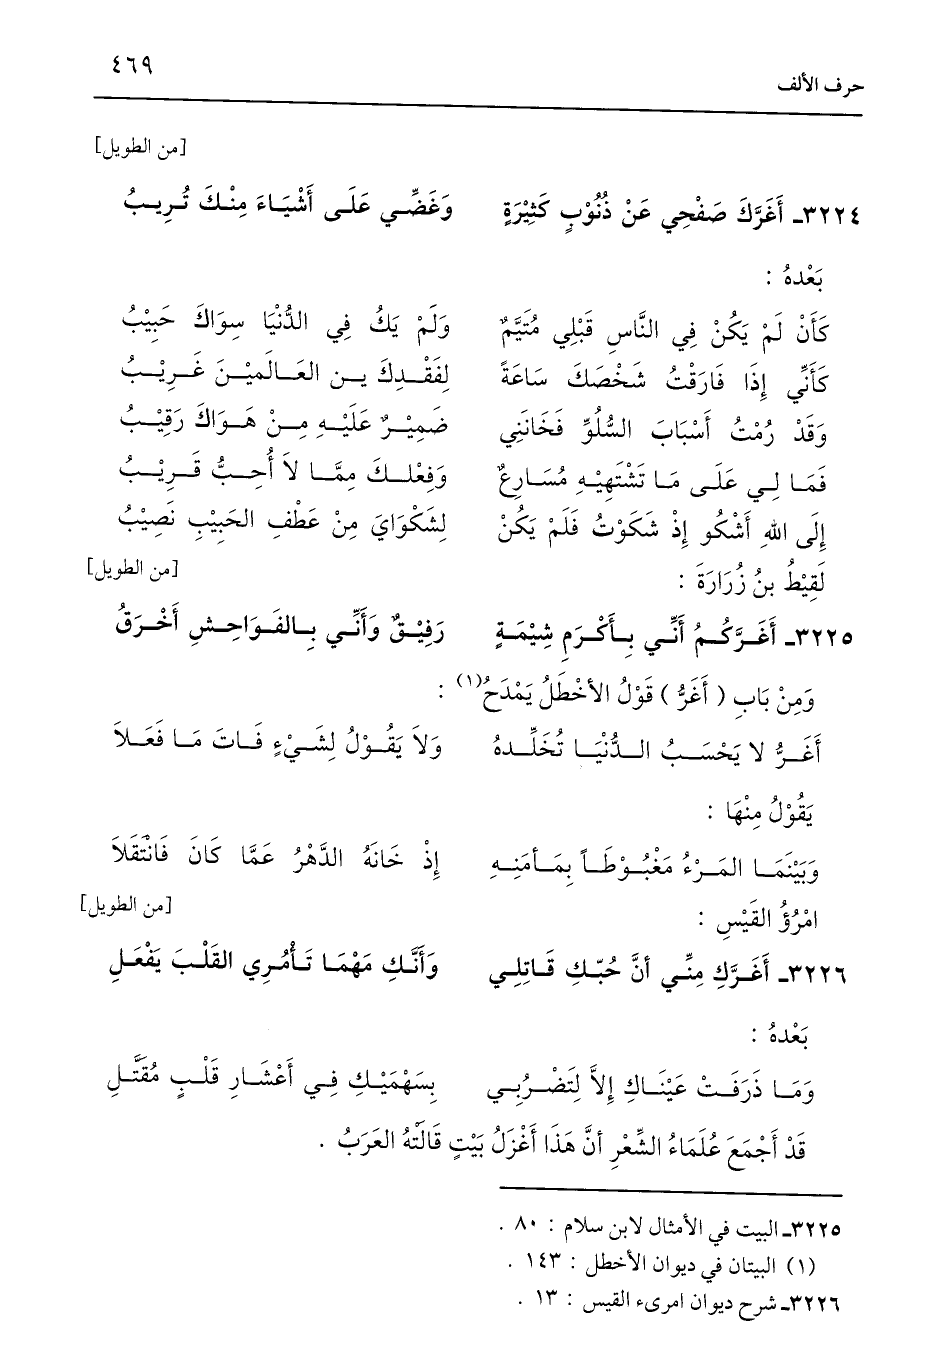 ٤٦٩
حرف الألف
[من الطويل]
٣٢٢٤ـ أَغَرَّكَ صَفْحِي عَنْ ذُنُوْبٍ كَثِيْرَةٍ وَغَضِّي عَلَى أَشْيَاءَ مِنْكَ تُرِيبُ
بَعْدهُ :
كَأَنْ لَمْ يَكُنْ فِي النَّاسِ قَبْلِي مُتَيَّمٌ وَلَمْ يَكُ فِي الدُّنْيَا سِوَاكَ حَبِيْبُ
كَأَنِّي إِذَا فَارَقْتُ شَخْصَكَ سَاعَةً لِفَقْدِكَ بيـن العَـالَمِيْـنَ غَـرِيْـبُ
وَقَدْ رُمْتُ أَسْبَابَ السُّلُوِّ فَخَانَنِي ضَمِيْـرٌ عَلَيْـهِ مِـنْ هَـوَاكَ رَقِيْـبُ
فَمَا لِي عَلَى مَا تَشْتَهِيْهِ مُسَارِعٌ وَفِعْلُـكَ مِمَّـا لاَ أُحِـبُّ قَـرِيْـبُ
إِلَى اللهِ أَشْكُو إِذْ شَكَوْتُ فَلَمْ يَكُنْ لِشَكْوَايَ مِنْ عَطْفِ الحَبِيْبِ نَصِيْبُ
لَقِيْطُ بنُ زُرَارَةَ : [من الطويل]
٣٢٢٥ـ أَغَـرَّكُـمُ أَنِّـي بِـأَكْـرَمِ شِيْمَـةٍ رَفِيْـقٌ وَأَنِّـي بِـالفَـوَاحِـشِ أَخْـرَقُ
وَمِنْ بَابِ ( أَغَرُّ ) قَوْلُ الأَخْطَلُ يَمْدَحُ(١) :
أَغَـرُّ لا يَحْسَـبُ الـدُّنْيَـا تُخَلِّـدهُ وَلاَ يَقُـوْلُ لِشَـيْءٍ فَـاتَ مَـا فَعَـلاَ
يَقُوْلُ مِنْهَا :
وَبَيْنَمَـا المَـرْءُ مَغْبُـوْطَـاً بِمَـأمَنِـهِ إِذْ خَانَهُ الدَّهْرُ عَمَّا كَانَ فَانْتَقَلاَ
امْرُؤُ القَيْسِ : [من الطويل]
٣٢٢٦ـ أَغَـرَّكِ مِنِّـي أنَّ حُبّـكِ قَـاتِلِـي وَأَنَّـكِ مَهْمَـا تَـأْمُـرِي القَلْـبَ يَفْعَـلِ
بَعْدهُ :
وَمَـا ذَرَفَـتْ عَيْنَـاكِ إِلاَّ لِتَضْـرُبِـي بِسَهْمَيْـكِ فِـي أَعْشَـارِ قَلْـبٍ مُقَتَّـلِ
قَدْ أَجْمَعَ عُلَمَاءُ الشِّعْرِ أنَّ هَذَا أَغْزَلُ بَيْتٍ قَالَتْهُ العَرَبُ .
٣٢٢٥ـ البيت في الأمثال لابن سلام : ٨٠ .
(١) البيتان في ديوان الأخطل : ١٤٣ .
٣٢٢٦ـ شرح ديوان امرىء القيس : ١٣ .